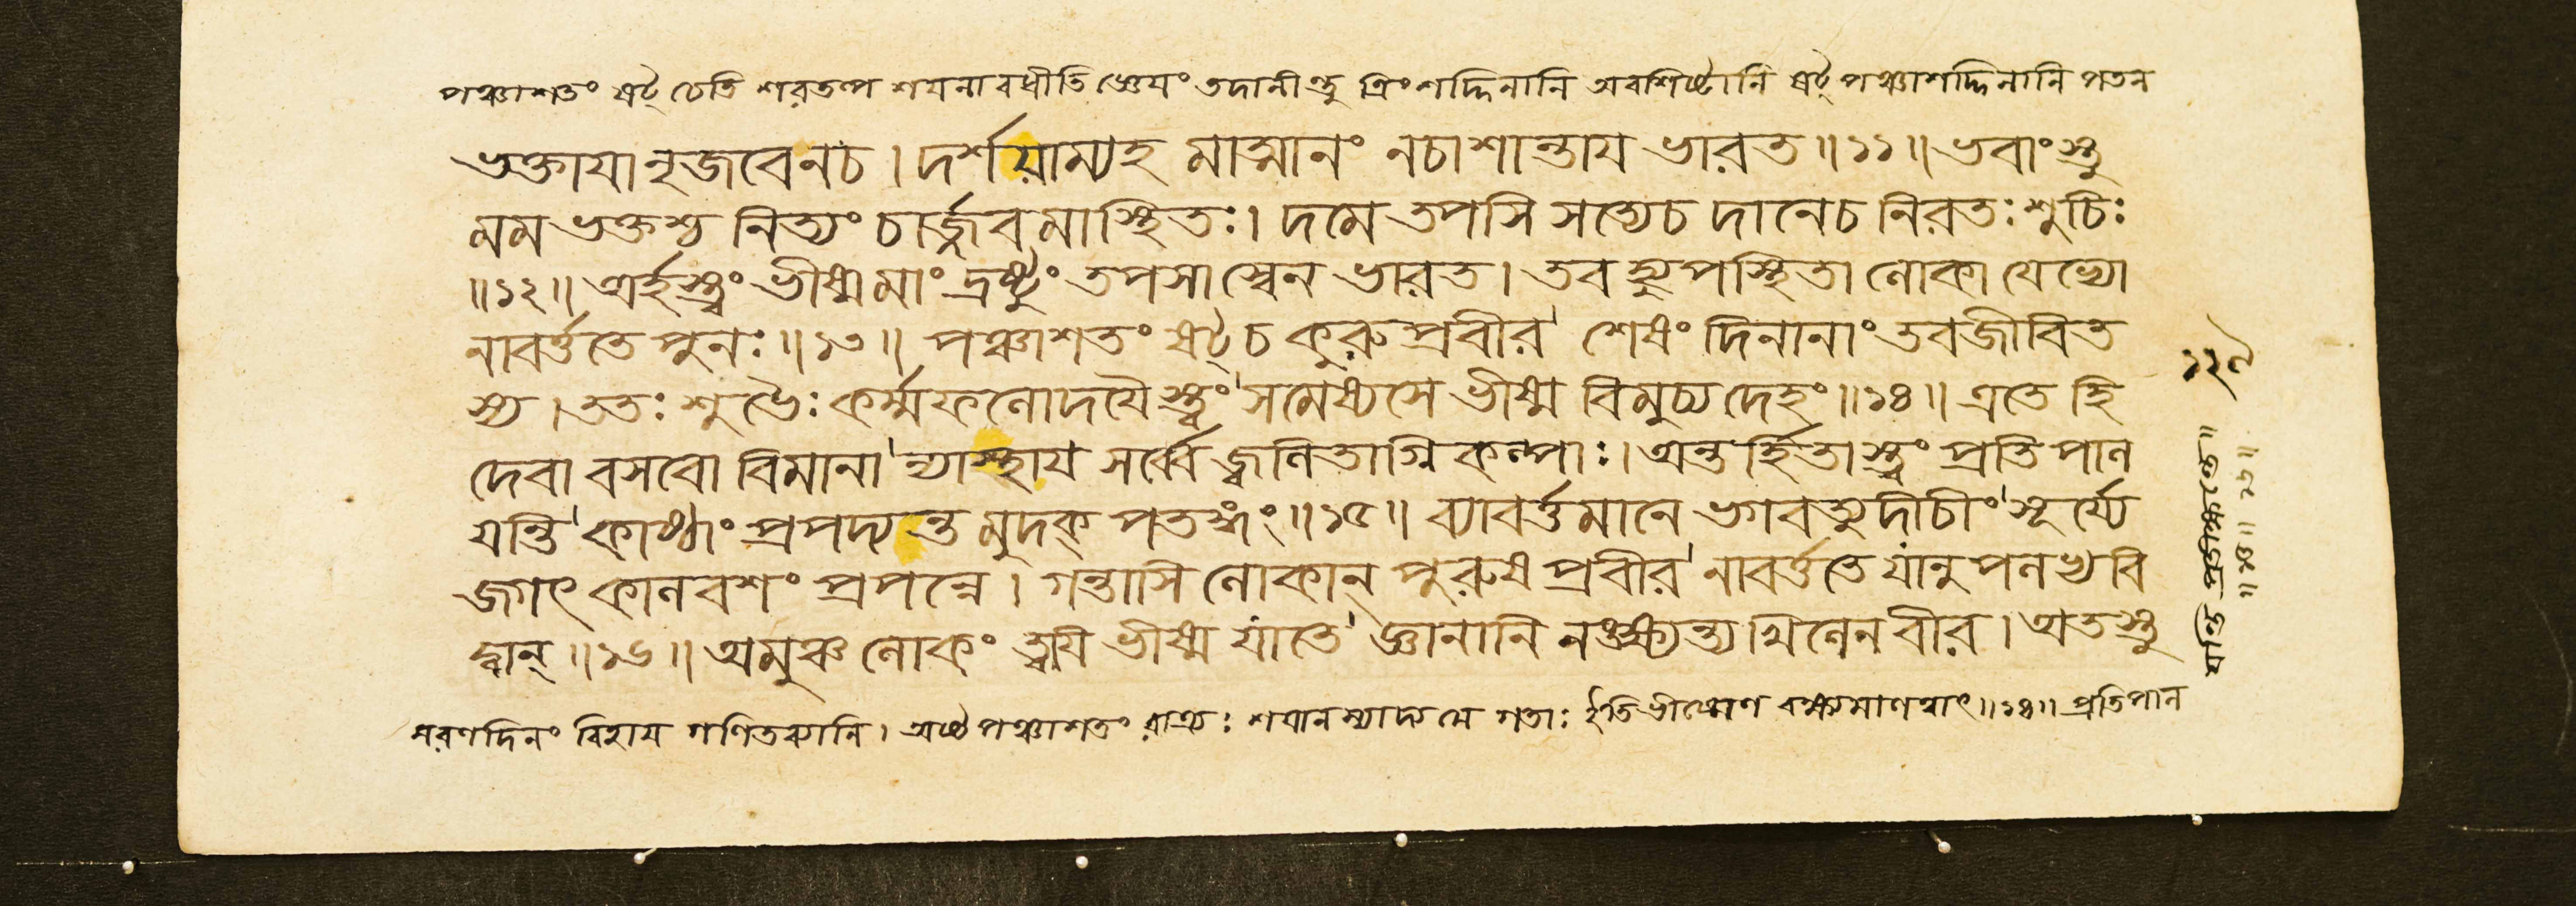 পঞ্চাশতং ষট্ চেতি শরতল্প শয়নাবধীতি জ্ঞেয়ং তদানীন্তু ত্রিংশদ্দিনানি অবশিষ্টানি ষট্ পঞ্চাশদ্দিনানি পতন
ভক্তাযানৃজবেনচ । দর্শয়াম্যহ মাত্মানং নচাশান্তায ভারত ॥ ১১ ॥ ভবাংস্তু
মম ভক্তশ্চ নিত্যং চার্জ্জবমাস্থিতঃ । দমে তপসি সত্যেচ দানেচ নিরতঃ শুচিঃ
॥ ১২ ॥ অর্হস্ত্বং ভীষ্ম মাং দ্রষ্টুং তপসা স্বেন ভারত । তব হ্যুপস্থিতা লোকা যেভ্যো
নাবর্ত্ততে পুনঃ ॥ ১৩ ॥ পঞ্চাশতং ষট্ চ কুরুপ্রবীর শেষং দিনানাং তবজীবিত
স্য । ততঃ শুভৈঃ কর্ম্মফলোদযৈস্ত্বং সমেষ্যসে ভীষ্ম বিমুচ্য দেহং ॥ ১৪ ॥ এতে হি
দেবা বসবো বিমানা ন্যাস্থায সর্ব্বে জ্বলিতাগ্নি কল্পাঃ । অন্তর্হিতাস্ত্বং প্রতি পাল
যন্তি কাষ্ঠাং প্রপদ্যন্ত মুদক্ পতঙ্গং ॥ ১৫ ॥ ব্যাবর্ত্তমানে ভগবত্যুদীচীং সূর্য্যে
জগৎ কালবশং প্রপন্নে । গন্তাসি লোকান্ পুরুষ প্রবীর নাবর্ত্ততে যানুপলভ্য বি
দ্বান্ ॥ ১৬ ॥ অমুঞ্চ লোকং ত্বযি ভীষ্ম যাতে জ্ঞানানি নঙ্ক্ষ্যন্ত্যখিলেন বীর । অতস্তু
মরণদিনং বিহায গণিতব্যানি । অষ্ট পঞ্চাশতং রাত্র্যঃ শয়ানস্যাদ্য মে গতাঃ ইতি ভীষ্মেণ বক্ষ্যমাণত্বাৎ ॥ ১৪ ॥ প্রতিপাল
১২৭
যন্তি প্রতীক্ষন্তে ॥
॥ ১৫ ॥ ১৬ ॥